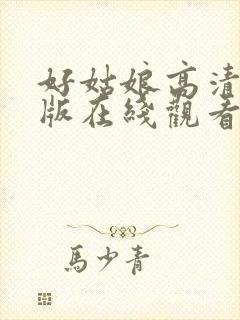 好姑娘高清
版在綫觀看
馬少青